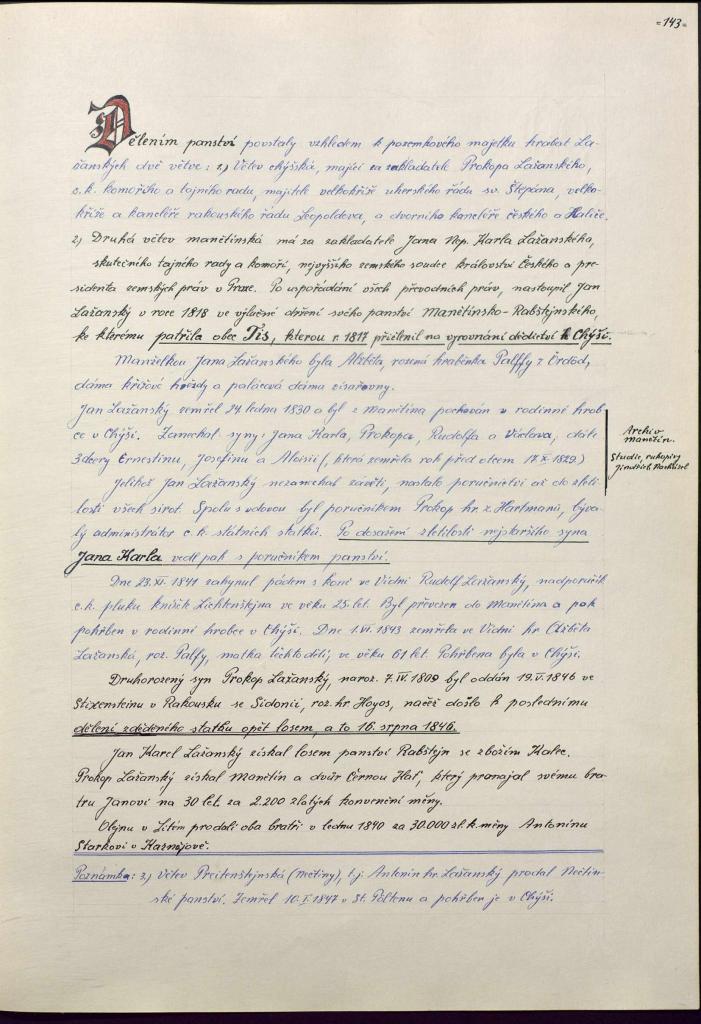 =143=
Dělením panství povstaly vzhledem k pozemkového majetku hrabat La-
žanských dvě větve: 1.) Větev chýšská, mající za zakladatele Prokopa Lažanského,
c.k. komořího a tajného radu, majitele velkokříže uherského řádu sv. Štěpána, velko-
kříže a kancléře rakouského řádu Leopoldova, a dvorního kancléře českého a Haliče.
2.) Druhá větev manětínská má za zakladatele Jana Nep. Karla Lažanského,
skutečného tajného rady a komoří, nejvyššího zemského soudce království Českého a pre-
sidenta zemských práv v Praze. Po uspořádání všech převodních práv, nastoupil Jan
Lažanský v roce 1818 ve výlučné držení svého panství Manětínsko-Rabštýnského,
ke kterému patřila obec Tis, kterou r. 1817 přičlenil na vyrovnání dědictví k Chýši.
Manželkou Jana Lažanského byla Alžběta, rozená hraběnka Palffy z Ördöd,
dáma křížové hvězdy a palácová dáma císařovny.
Jan Lažanský zemřel 24. ledna 1830 a byl z Manětína pochován v rodinné hrob-
ce v Chýši. Zanechal syny: Jana Karla, Prokopa, Rudolfa a Václava, dále
3 dcery Ernestinu, Josefinu a Aloisii (, která zemřela rok před otcem 17.X.1829)
Archiv
Manětín.
Studie, rukopisy
Jindřich
Jelikož Jan Lažanský nezanechal závěti, nastalo poručnictví až do zleti-
losti všech sirot. Spolu s vdovou byl poručníkem Prokop hr. z Hartmanů, býva-
lý administrátor c.k. státních statků. Po dosažení zletilosti nejstaršího syna
Jana Karla vedl pak s poručníkem panství.
Dne 23.XI.1841 zahynul pádem s koně ve Vídni Rudolf Lažanský, nadporučík
c.k. pluku knížete Lichtenštejna ve věku 25 let. Byl převezen do Manětína a pak
pohřben v rodinné hrobce v Chýši. Dne 1.VI.1843 zemřela ve Vídni hr. Alžběta
Lažanská, roz. Palfy, matka těchto dětí, ve věku 61 let. Pohřbena byla v Chýši.
Druhorozený syn Prokop Lažanský, naroz. 7.IV.1809 byl oddán 19.V.1846 ve
Stixensteinu v Rakousku se Sidonií, roz. hr. Hoyos, načež došlo k poslednímu
dělení zděděného statku opět losem, a to 16. srpna 1846.
Jan Karel Lažanský získal losem panství Rabštýn se zbožím Kalec.
Prokop Lažanský získal Manětín a dvůr Černou Hať, který pronajal svému bra-
tru Janovi na 30 let za 2.200 zlatých konvenční měny.
Olejnu v Lítém prodali oba bratři v lednu 1840 za 30.000 zl. k. měny Antonínu
Starkovi v Kaznějově.
Poznámka: 3.) Větev Preitenštejnská (Nečtiny), t.j. Antonín hr. Lažanský prodal Nečtin-
ské panství. Zemřel 10.I.1847 v St. Pöltenu a pohřben je v Chýši.